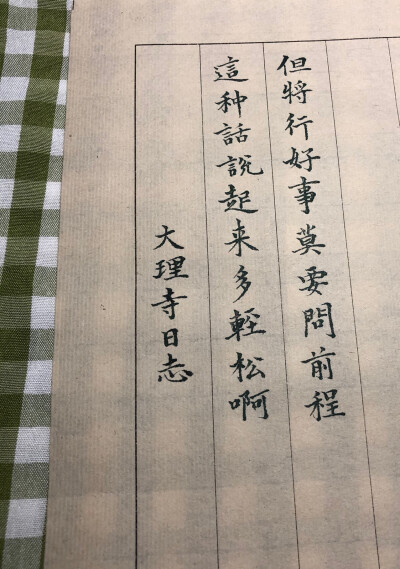 但将行好事莫要問前程
這种話說起来多輕松啊
大理寺日志